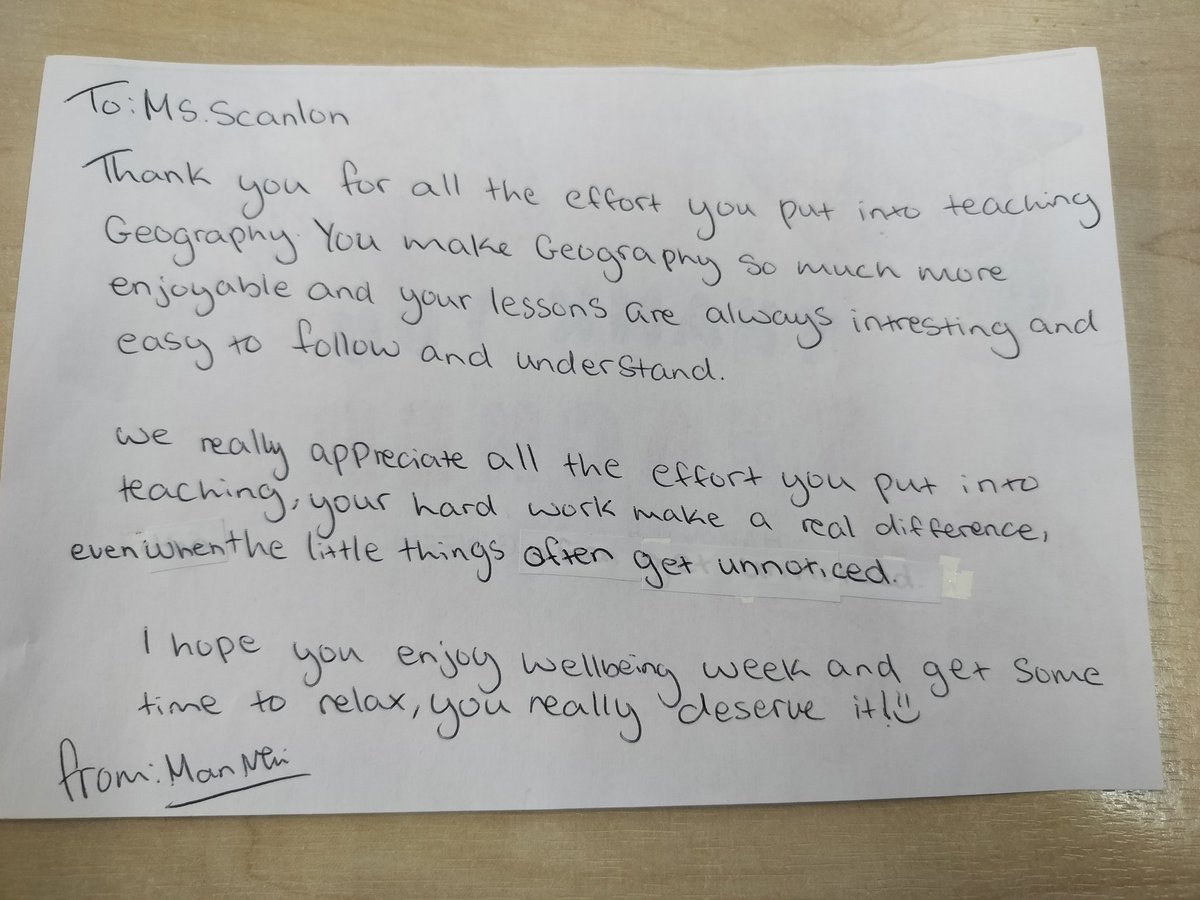 To: Ms. Scanlon
Thank you for all the effort you put into teaching
Geography. You make Geography so much more
enjoyable and your lessons are always intresting and
easy to follow and understand.
we really appreciate all the effort you put into
teaching, your hard work make a real difference,
even when the little things often get unnoticed.
I hope you enjoy wellbeing week and get some
time to relax, you really deserve it! :)
from: Man